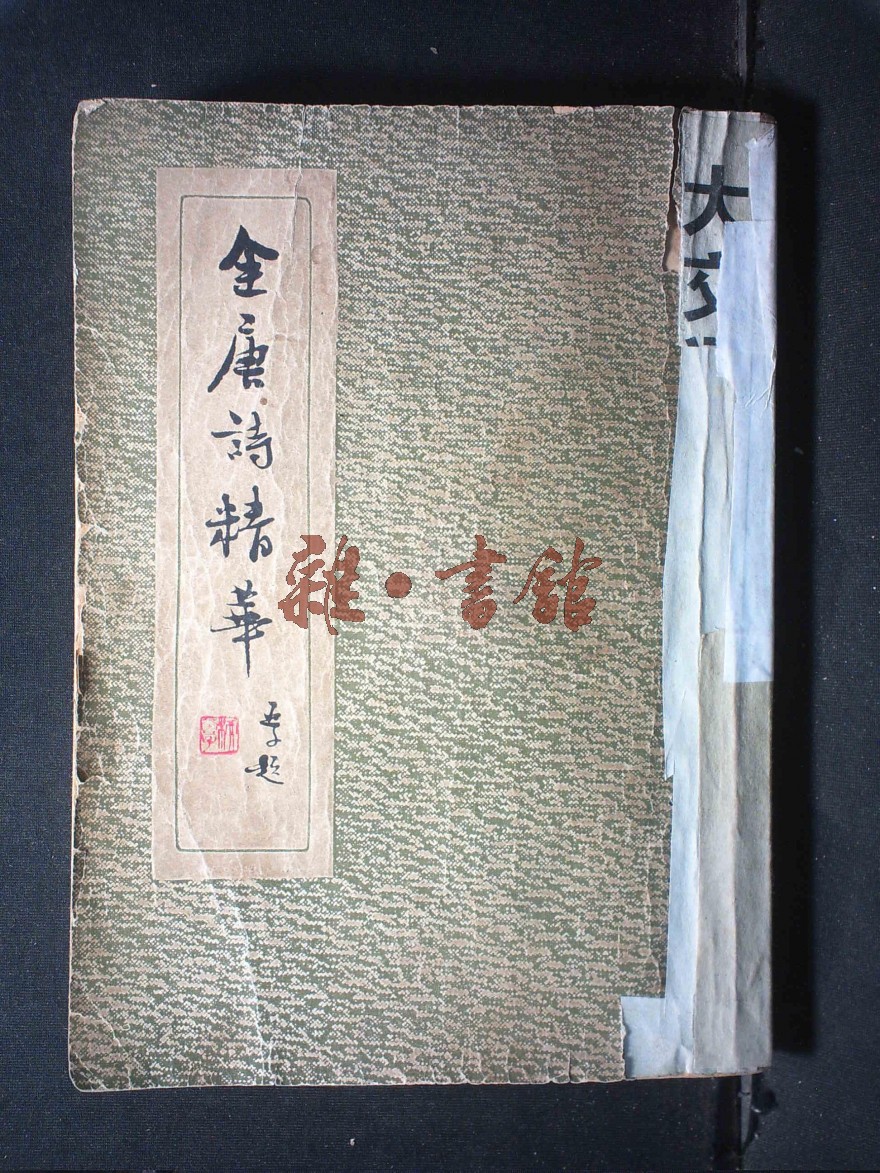 全唐詩精華
題
雜·書館
大